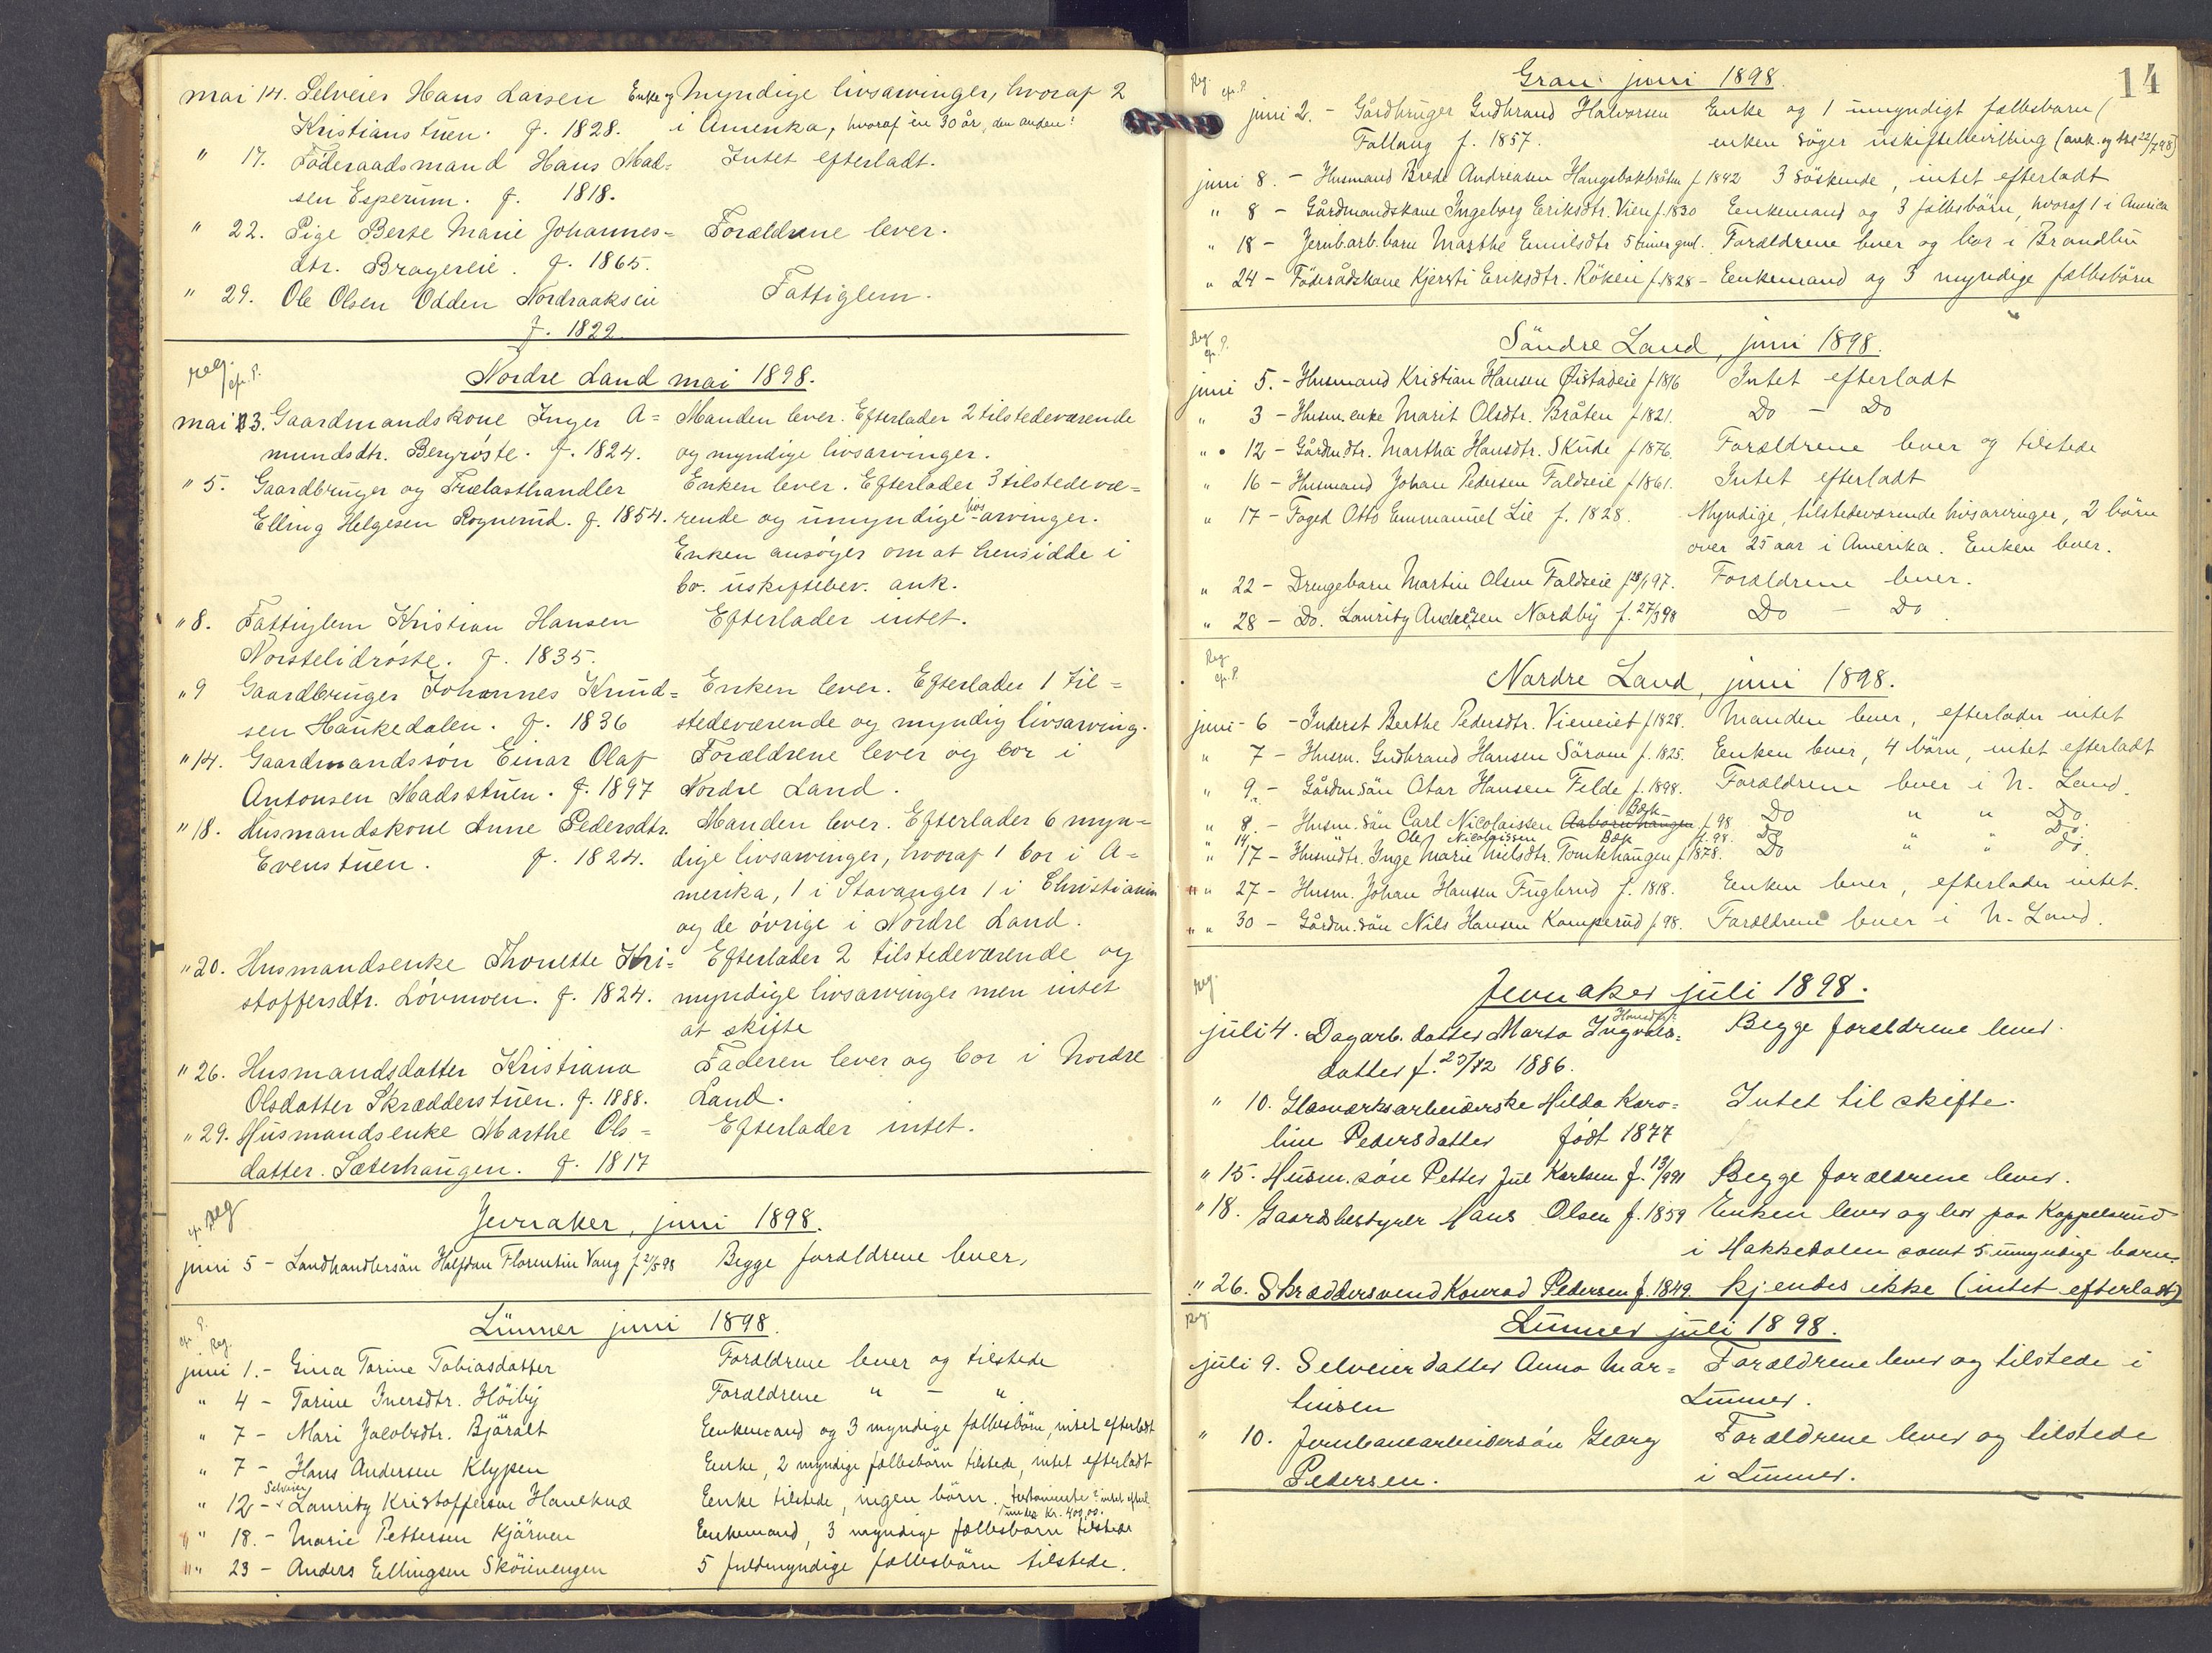 mai 14. Selveier Hans Larsen Enke og Myndige livsarvinger, hvoraf 2
Kristianstuen. f. 1828. i Amerika, hvoraf en 30 år, den anden?
" 17. Føderaadsmand Hans Mad= Intet efterladt.
sen Esperum. f. 1818.
" 22. Pige Berte Marie Johannes= Forældrene lever.
dtr. Bragereie. f. 1865.
" 29. Ole Olsen Odden Nordraakseie Fattiglem.
f. 1822.
reg. cfr. P.
Nordre Land mai 1898.
mai 3. Gaardmandskone Inger A= Manden lever. Efterlader 2 tilstedeværende
mundsdtr. Bergrøste. f. 1824. og myndige livsarvinger.
" 5. Gaardbruger og Trælasthandler Enken lever. Efterlader 3 tilstedevæ=
Elling Helgesen Rognerud. f. 1854. rende og umyndige livsarvinger.
Enken ansøger om at hensidde i
bo. uskiftebev. ank.
" 8. Fattiglem Kristian Hansen Efterlader intet.
Norstelidrøste. f. 1835.
" 9 Gaardbruger Johannes Knud= Enken lever. Efterlader 1 til=
sen Haukedalen. f. 1836 stedeværende og myndig livsarving.
" 14. Gaardmandssøn Einar Olaf Forældrene lever og bor i
Antonsen Madsstuen. f. 1897 Nordre Land.
" 18. Husmandskone Anne Pedersdtr. Manden lever. Efterlader 6 myn=
Evenstuen. f. 1824. dige livsarvinger, hvoraf 1 bor i A=
merika, 1 i Stavanger 1 i Christiania
og de øvrige i Nordre Land.
" 20. Husmandsenke Thonette Kri= Efterlader 2 tilstedeværende og
stoffersdtr. Løvmoen. f. 1824. myndige livsarvinger men intet
at skifte
" 26. Husmandsdatter Kristiana Faderen lever og bor i Nordre
Olsdatter Skrædderstuen. f. 1888. Land.
" 29. Husmandsenke Marthe Ols= Efterlader intet.
datter. Sæterhaugen. f. 1817
cfr. reg
Jevnaker, juni 1898.
juni 5 - Landhandlersön Halfdan Florentin Vang f. 2/5 98 Begge forældrene lever,
cfr. P. Reg.
Lunner juni 1898.
juni 1. - Gina Torine Tobiasdatter Forældrene lever og tilstede
" 4 - Torine Iversdtr. Höiby Forældrene " - "
" 7 - Mari Jacobsdtr. Bjäralt Eenkemand og 3 myndige fællesbörn, intet efterladt
" 7 - Hans Andersen Klypen Eenke, 2 myndige fællesbörn tilstede, intet efterladt
" 12 - Selveier Lauritz Kristoffersen Hanekne Eenke tilstede, ingen börn. testamente? intet efterl.
under Kr. 400,00.
" 18. - Marie Pettersen Kjärven Eenkemand, 3 myndige fællesbörn tilstede
" 23 - Anders Ellingsen Sköienengen 5 fuldmyndige fællesbörn tilstede.
14
Reg. cfr. P.
Gran juni 1898.
juni 2. - Gårdbruger Gudbrand Halvorsen Enke og 1 umyndigt fællesbarn (
Fallang f. 1857. enken söger uskiftebevilling (ank. og 22/7 98)
juni 8. - Husmand Brede Andreasen Haugsbakbråten f. 1842 3 söskende, intet efterladt
" 8 - Gårdmandskone Ingeborg Eriksdtr. Vien f. 1830 Eenkemand og 3 fællesbörn, hvoraf 1 i America
" 18 - Jernb.arb. barn Marthe Emilsdtr 5 timer gml. Forældrene lever og bor i Brandbu
" 24 - Föderådskone Kjersti Eriksdtr. Röken f. 1828 - Eenkemand og 3 myndige fællesbörn
Reg cfr. P.
Söndre Land, juni 1898.
juni 5. - Husmand Kristian Hansen Øistadeie f 1816 Intet efterladt
" 3 - Husm. enke Marit Olsdtr. Bråten f 1821. Do - Do
" 12 - Gårdm.dtr. Martha Hansdtr. Skude f 1876. Forældrene lever og tilstede
" 16 - Husmand Johan Pedersen Faldseie f 1861. Intet efterladt
" 17 - Foged Otto Emmanuel Lie f. 1828. Myndige, tilstedeværende livsarvinger, 2 börn
over 25 aar i Amerika. Enken lever.
" 22 - Drengebarn Martin Olsen Faldseie f 97. Forældrene lever.
" 28 - Do. Lauritz Andresen Nordby f. 27/3 98 Do - Do
Reg cfr. P.
Nordre Land, juni 1898.
juni - 6 - Inderst Berthe Pedersdtr. Vieneiet f 1828. Manden lever, efterlader intet
" 7 - Husm. Gudbrand Hansen Sörom f. 1825. Eenken lever, 4 börn, intet efterladt
" 9. - Gårdm.sön Otar Hansen Felde f. 1898. Forældrene lever i N. Land.
" 8. - Husm. sön Carl Nicolaissen Aabornhaugen Bæk f. 98 Do " " Do
" 14. Ole Nicolaissen Bæk f. 98. Do " " Do.
" 17 - Husmdtr. Inge Marie Nilsdtr. Tomtehaugen f 1878. Do " " Do.
" 27 - Husm. Johan Hansen Fuglerud f. 1818. Eenken lever, efterlader intet.
" 30 - Gårdm. sön Nils Hansen Kamperud f 98. Forældrene lever i N. Land.
reg
Jevnaker juli 1898.
juli 4. Dagarb. datter Marta Ingvalds= Begge forældrene lever.
datter f. 1886.
" 10. Glasværksarbeiderske Hilda Karo= Intet til skifte.
line Pedersdatter født 1877
" 15. Husm. søn Petter Jul Karlsen f. 13/9 91 Begge forældrene lever.
" 18. Gaardsbestyrer Hans Olsen f. 1859 Enken lever og bor paa Koppelsrud
i Hakkedalen samt 5 umyndige barn.
" 26. Skræddersvend Konrad Pedersen f. 1849. Kjendes ikke (intet efterladt)
Reg
Lunner juli 1898.
juli 9. Selveierdatter Anna Mar= Forældrene lever og tilstede i
tinsen Lunner.
" 10. Jernbanearbeidersøn Georg Forældrene lever og tilstede
Pedersen. i Lunner.